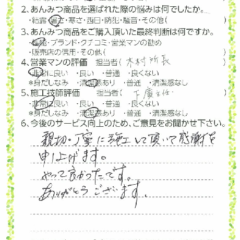 2.あんみつ商品を選ばれた際の悩みは何でしたか。
・結露・ ・寒さ・西日・防犯・騒音・その他(
3.あんみつ商品をご購入頂いた最終判断は何ですか。
・ブランド・クチコミ・営業マンの勧め
・販売店の信用・その他(
4.営業マンの評価 担当者( 木村所長
に良い ・良い ・普通 ・良くない
※身だしなみ 清潔 あり ・普通 ・清潔感なし
5.施工技師評価 担当者(
に良い ・良い ・普通 ・良くない
※身だしなみ あり ・普通 ・清潔感なし
6.今後のサービス向上のため、ご意見をお聞かせ下さい。
親切、丁寧に施工して頂いて感謝を
申し上げます。
やって良かったです。
ありがとうございます。